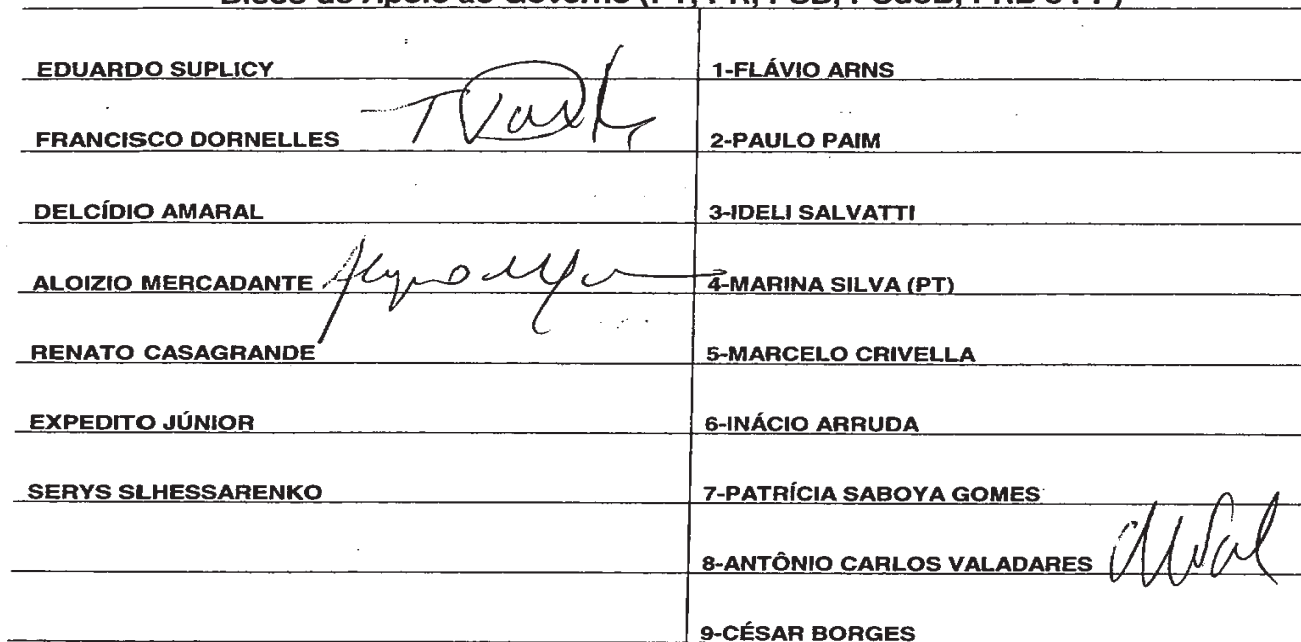 Bloco de Apoio ao Governo (PT, PR, PSB, PCdoB, PRB e PP)
EDUARDO SUPLICY 1-FLÁVIO ARNS
FRANCISCO DORNELLES 2-PAULO PAIM
DELCÍDIO AMARAL 3-IDELI SALVATTI
ALOIZIO MERCADANTE 4-MARINA SILVA (PT)
RENATO CASAGRANDE 5-MARCELO CRIVELLA
EXPEDITO JÚNIOR 6-INÁCIO ARRUDA
SERYS SLHESSARENKO 7-PATRÍCIA SABOYA GOMES
8-ANTÔNIO CARLOS VALADARES
9-CÉSAR BORGES